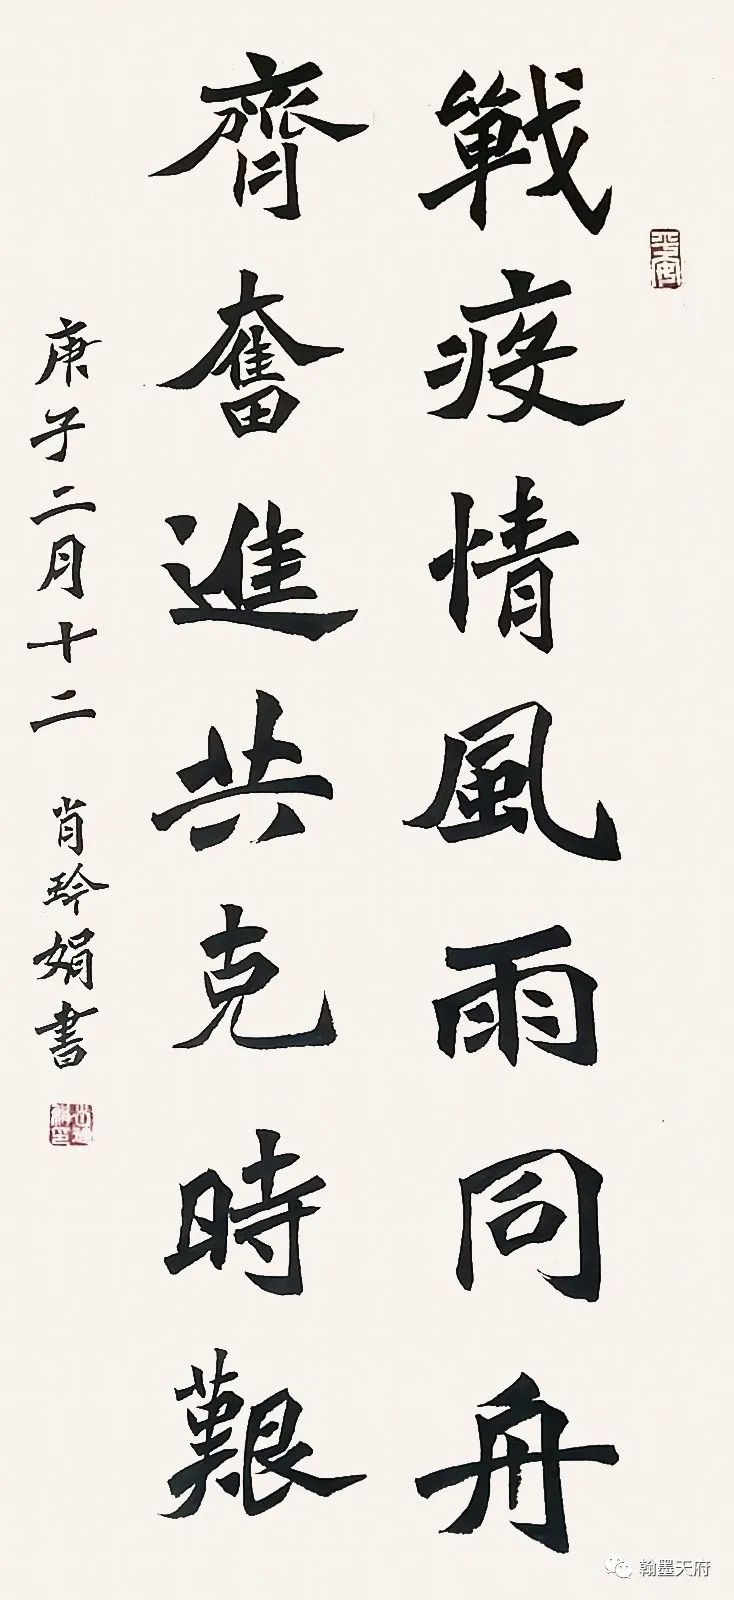 戰疫情風雨同舟
齊奮進共克時艱
庚子二月十二 肖玲娟書
翰墨天府